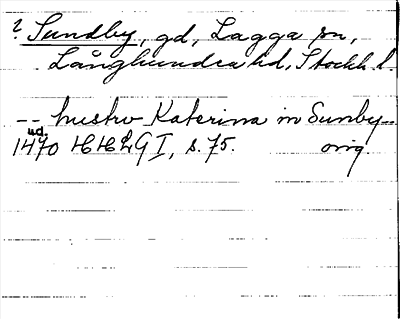 ? Sundby, gd, Lagga sn,
Långhundra hd, Stockh. l.
-- hustrv Katerina in Sunby --
ud.
1470 HH2GI, s. 75. orig.